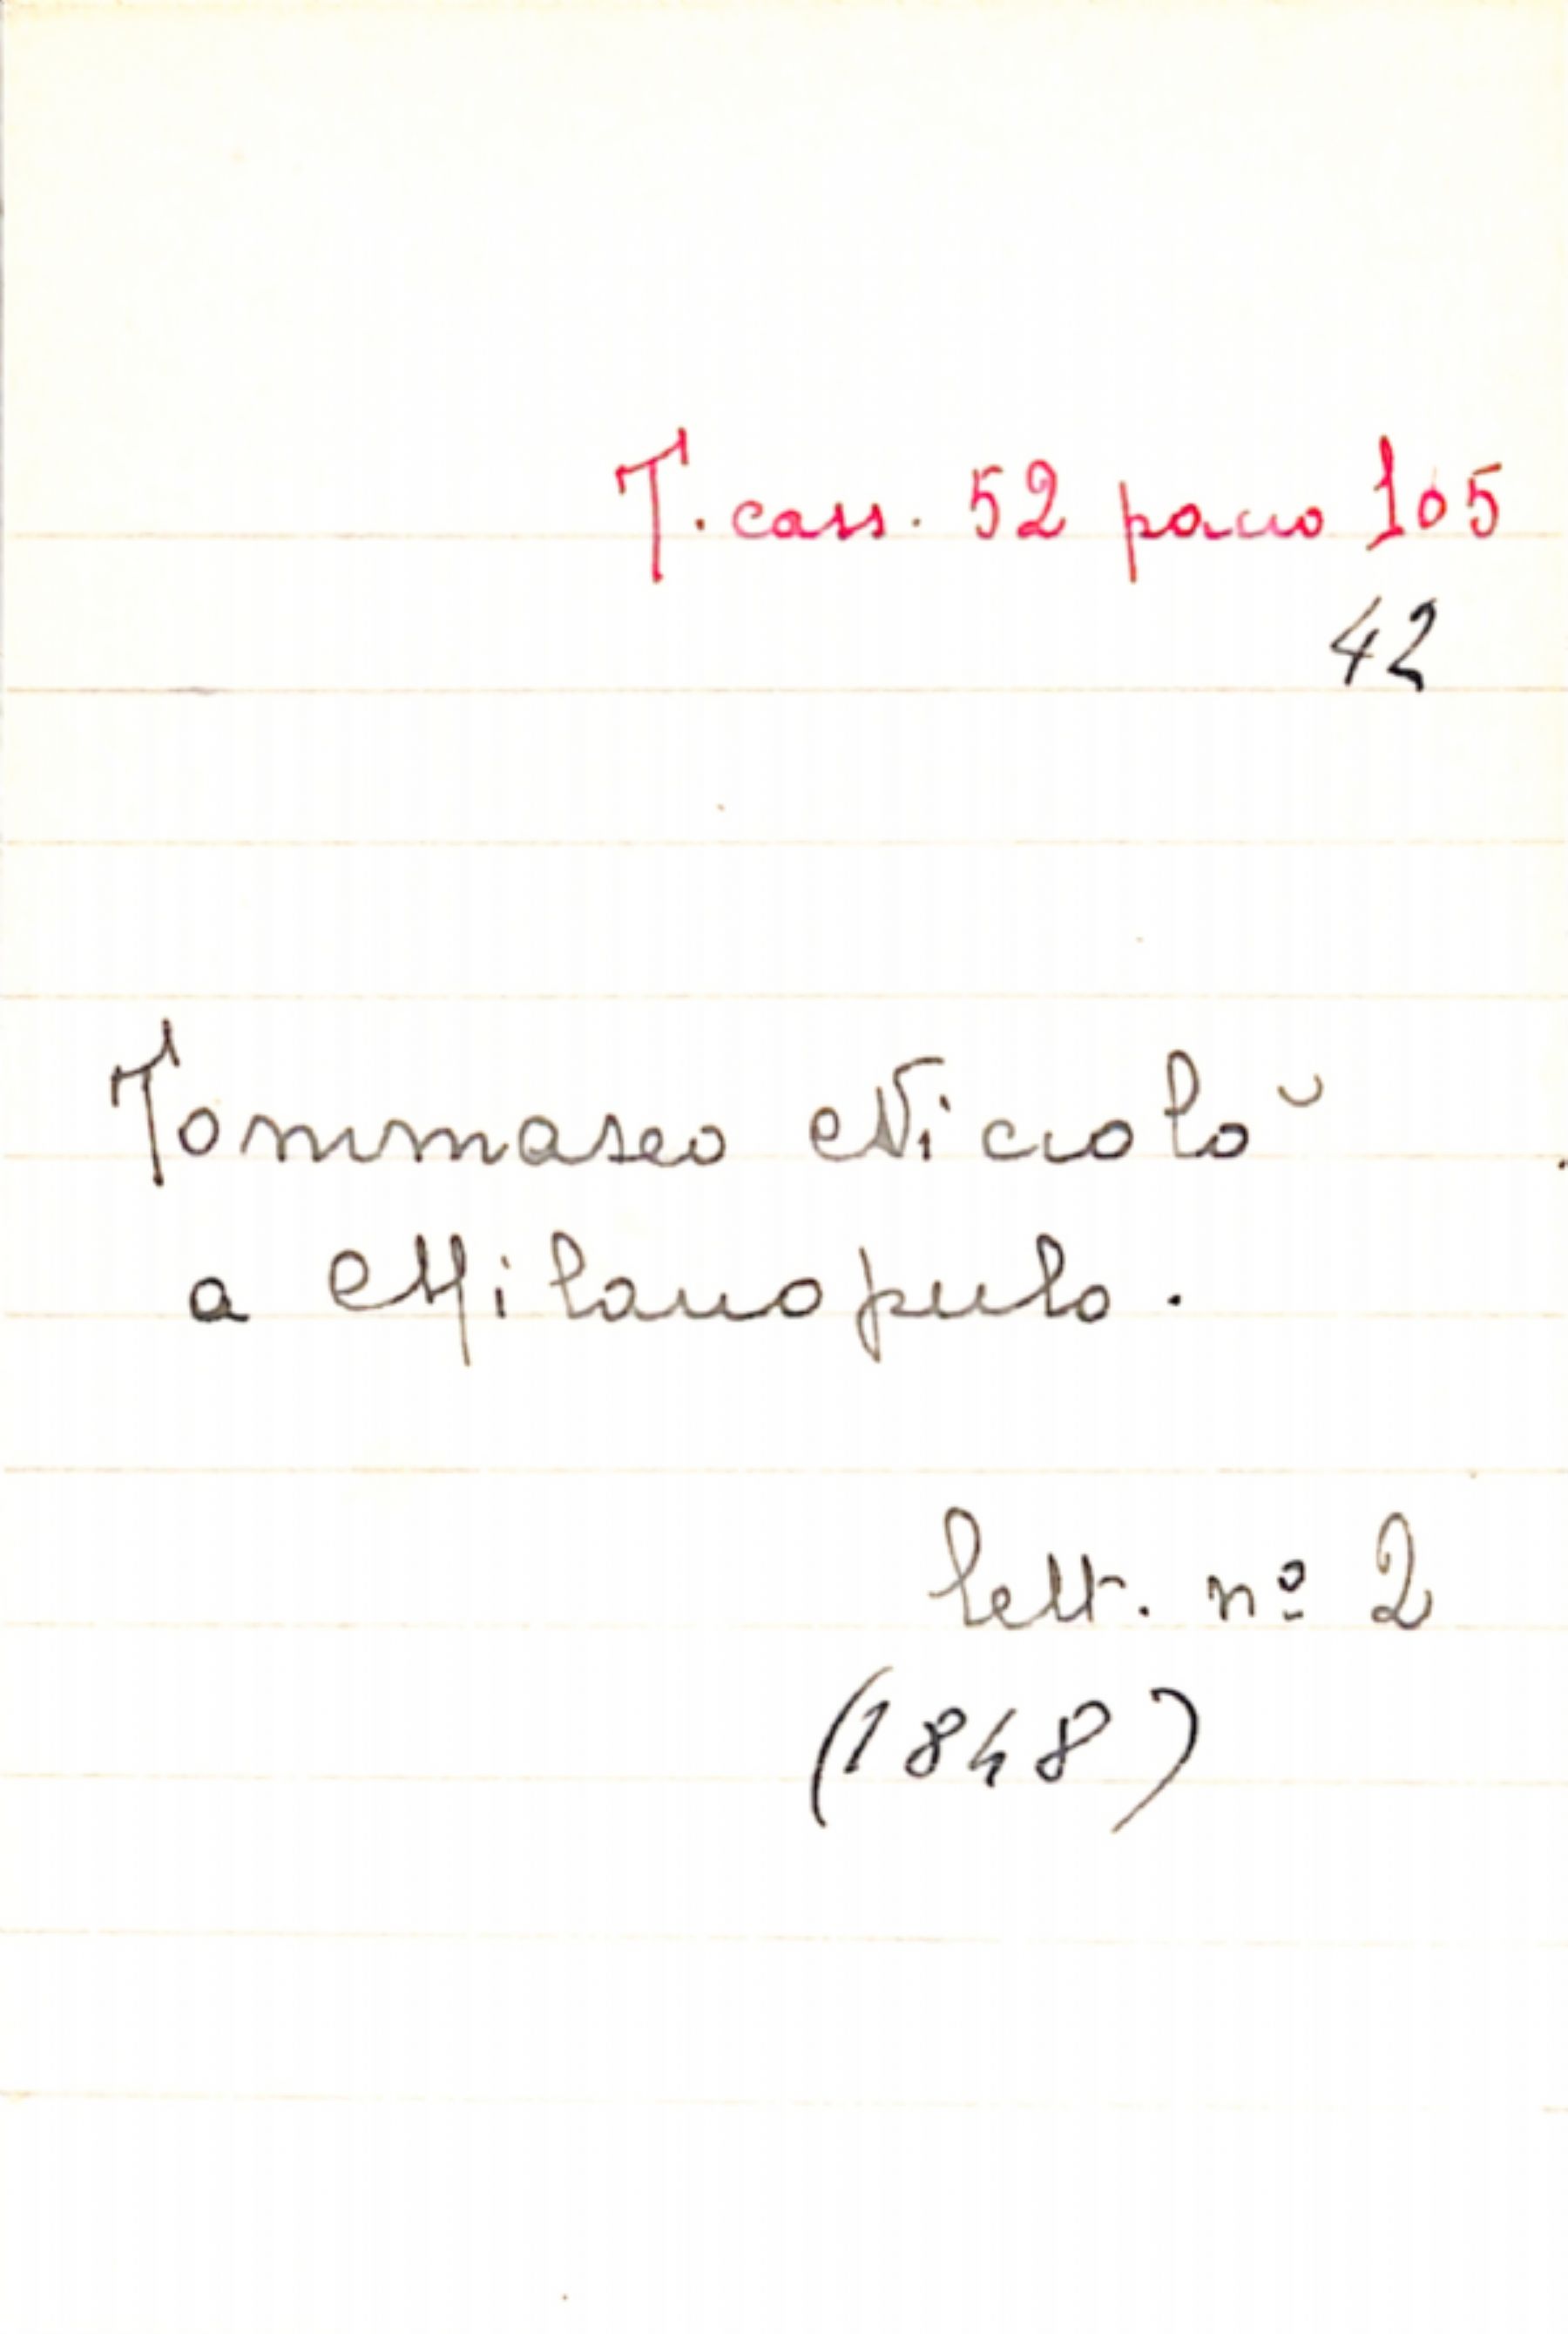 T. cass. 52 pacco 105
42
Tommaseo Niccolò
a Milanopulo.
lett. nº 2
(1848)